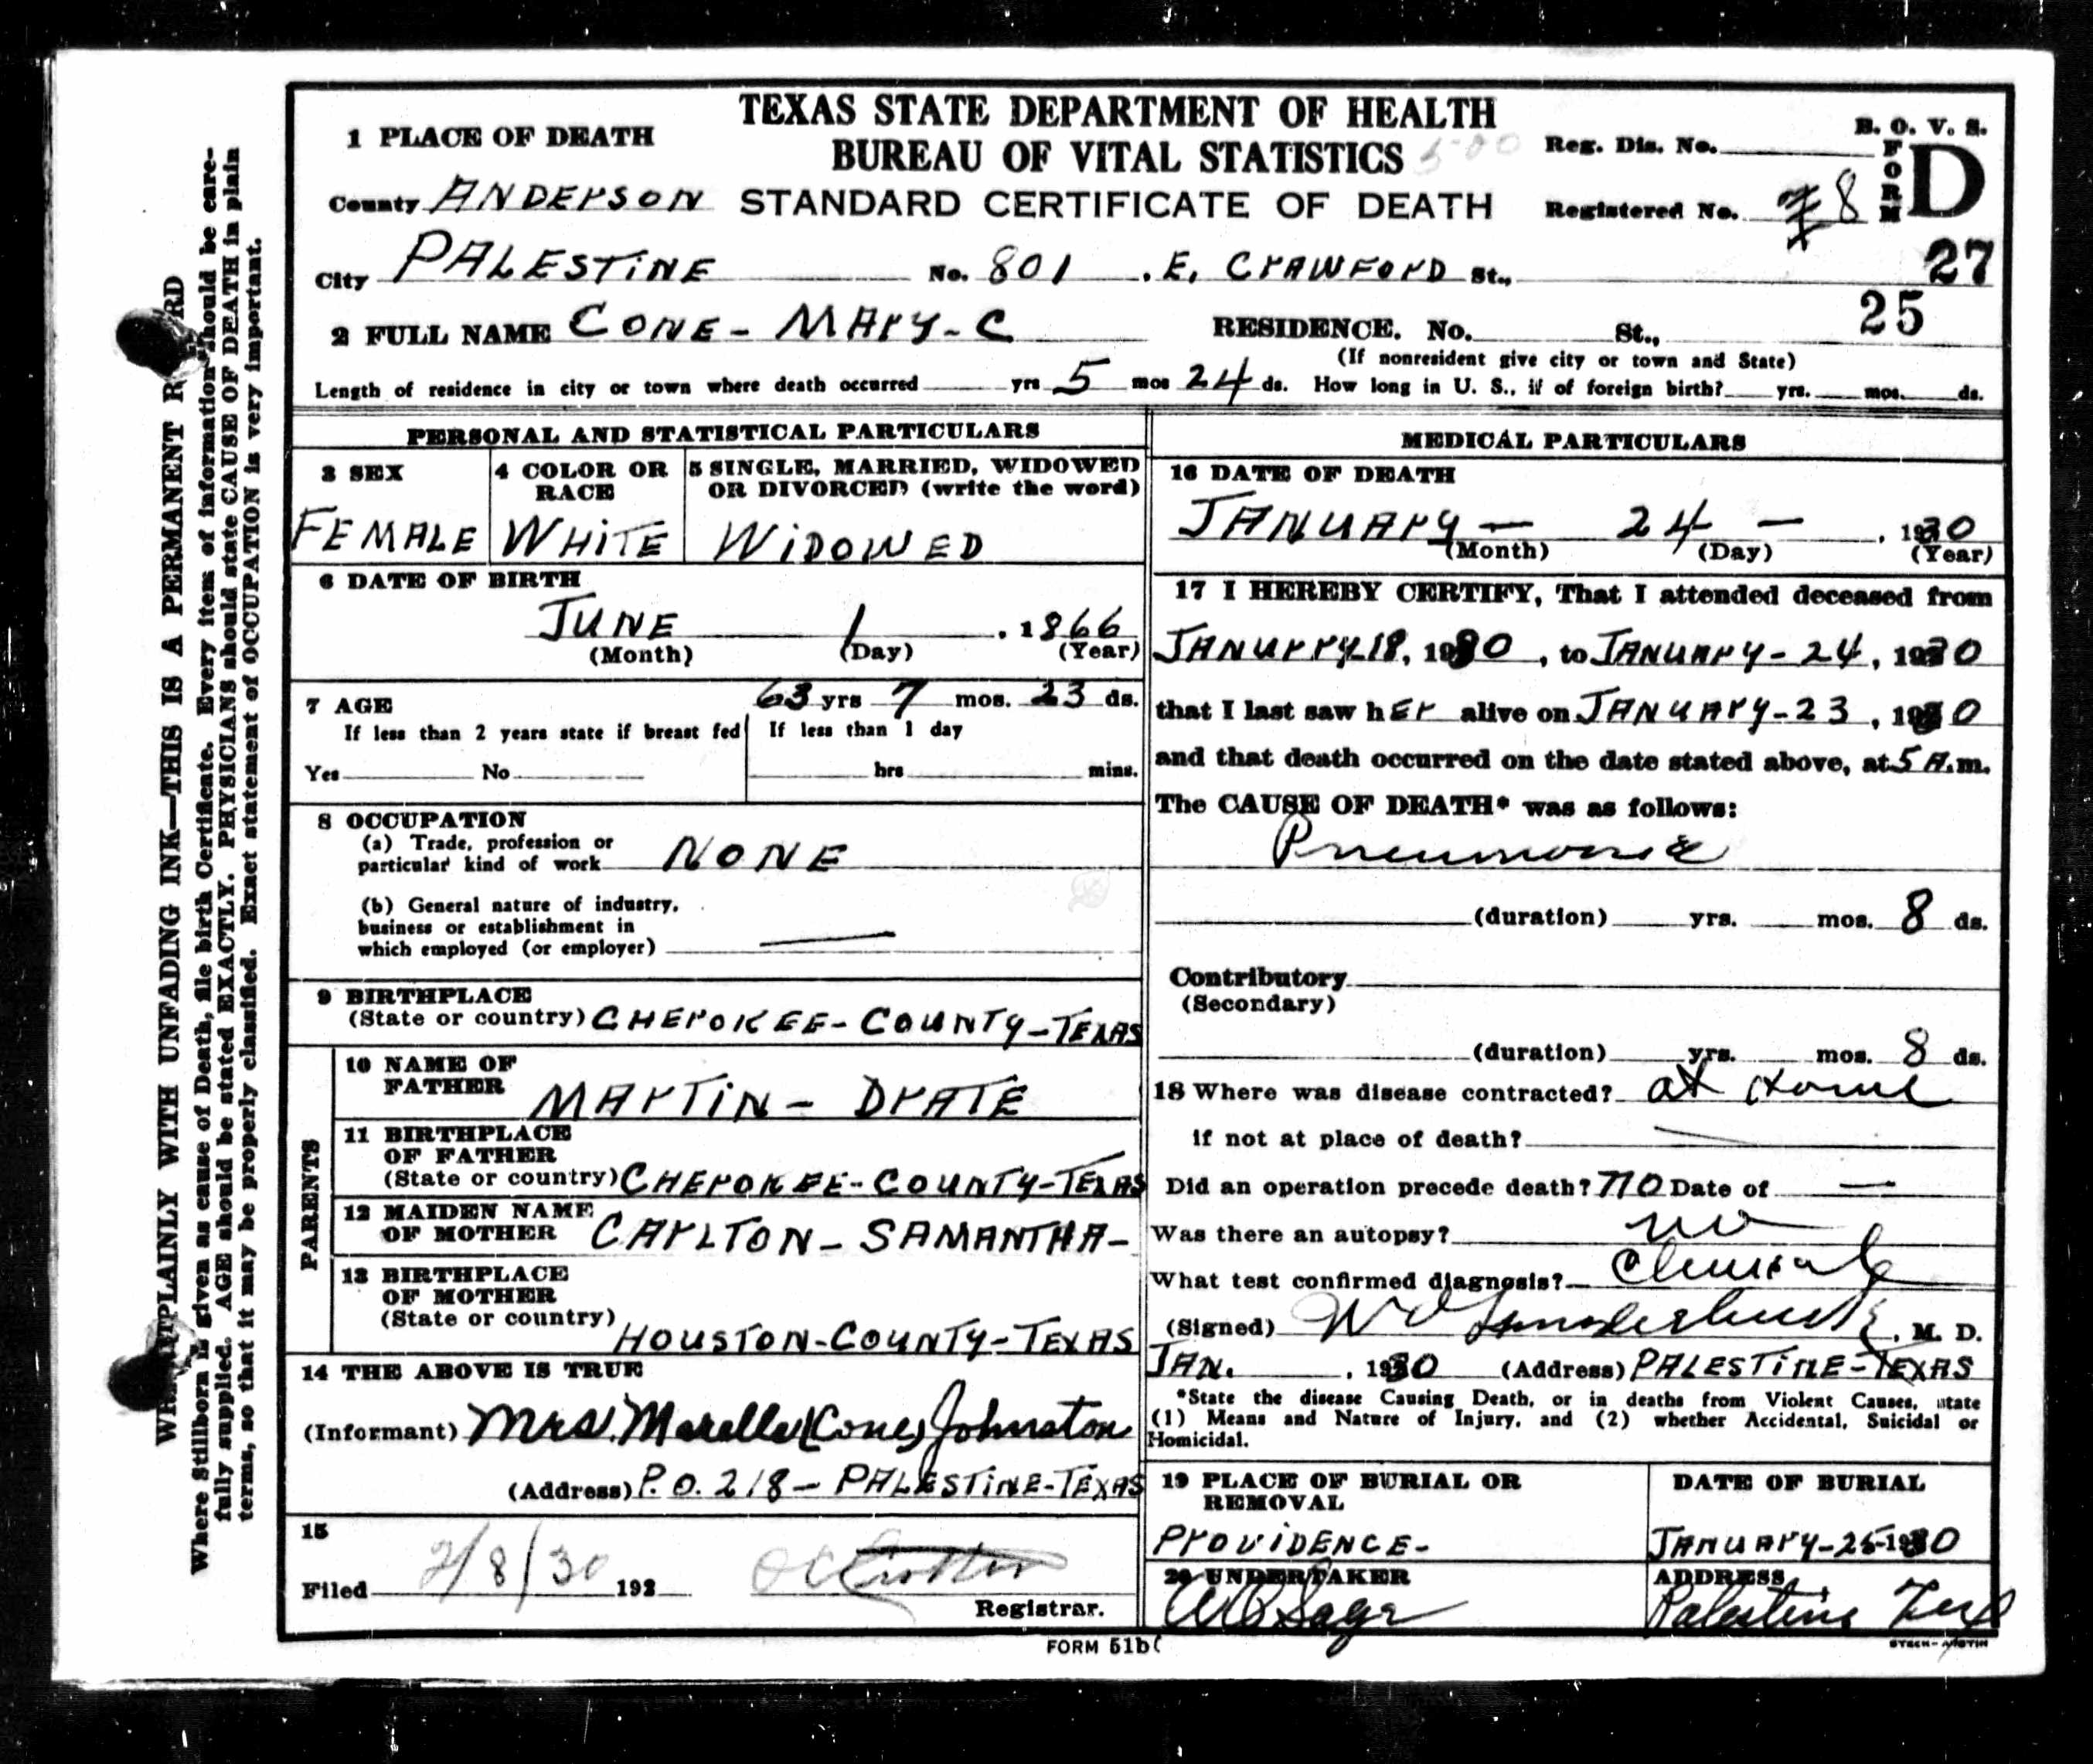 TEXAS STATE DEPARTMENT OF HEALTH
BUREAU OF VITAL STATISTICS
STANDARD CERTIFICATE OF DEATH
B. O. V. S.
FORM D
Reg. Dis. No.
Registered No. 8
27
25
1 PLACE OF DEATH
County ANDERSON
City PALESTINE No. 801 . E. CRAWFORD St.,
2 FULL NAME CONE - MARY - C RESIDENCE. No. St.,
(If nonresident give city or town and State)
Length of residence in city or town where death occurred yrs 5 mos 24 ds. How long in U. S., if of foreign birth? yrs. mos. ds.
PERSONAL AND STATISTICAL PARTICULARS
3 SEX
FEMALE
4 COLOR OR
RACE
WHITE
5 SINGLE, MARRIED, WIDOWED
OR DIVORCED (write the word)
WIDOWED
6 DATE OF BIRTH
JUNE 1 , 1866
(Month) (Day) (Year)
7 AGE 63 yrs 7 mos. 23 ds.
If less than 2 years state if breast fed
Yes No
If less than 1 day
hrs mins.
8 OCCUPATION
(a) Trade, profession or
particular kind of work NONE
(b) General nature of industry,
business or establishment in
which employed (or employer) —
9 BIRTHPLACE
(State or country) CHEROKEE - COUNTY - TEXAS
PARENTS
10 NAME OF
FATHER MARTIN - DRATE
11 BIRTHPLACE
OF FATHER
(State or country) CHEROKEE - COUNTY - TEXAS
12 MAIDEN NAME
OF MOTHER CARLTON - SAMANTHA -
13 BIRTHPLACE
OF MOTHER
(State or country) HOUSTON - COUNTY - TEXAS
14 THE ABOVE IS TRUE
(Informant) Mrs. Marelle (Cone) Johnston
(Address) P. O. 218 - PALESTINE - TEXAS
15
Filed 2/8/30 192
Registrar.
MEDICAL PARTICULARS
16 DATE OF DEATH
JANUARY — 24 — , 1930
(Month) (Day) (Year)
17 I HEREBY CERTIFY, That I attended deceased from
JANUARY 18, 1930 , to JANUARY - 24 , 1930
that I last saw hER alive on JANUARY - 23 , 1930
and that death occurred on the date stated above, at 5 A.m.
The CAUSE OF DEATH* was as follows:
Pneumonia
(duration) yrs. mos. 8 ds.
Contributory
(Secondary)
(duration) yrs. mos. 8 ds.
18 Where was disease contracted? at Home
if not at place of death? —
Did an operation precede death? NO Date of —
Was there an autopsy? no
What test confirmed diagnosis? Clinical
(Signed) , M. D.
JAN. , 1930 (Address) PALESTINE - TEXAS
*State the disease Causing Death, or in deaths from Violent Causes, state
(1) Means and Nature of Injury, and (2) whether Accidental, Suicidal or
Homicidal.
19 PLACE OF BURIAL OR
REMOVAL
PROVIDENCE -
DATE OF BURIAL
JANUARY - 25 - 1930
20 UNDERTAKER
ADDRESS
Palestine Tex
FORM 51b
STECK-AUSTIN
WRITE PLAINLY WITH UNFADING INK—THIS IS A PERMANENT RECORD
Where Stillborn is given as cause of Death, file birth Certificate. Every item of information should be care-
fully supplied. AGE should be stated EXACTLY. PHYSICIANS should state CAUSE OF DEATH in plain
terms, so that it may be properly classified. Exact statement of OCCUPATION is very important.